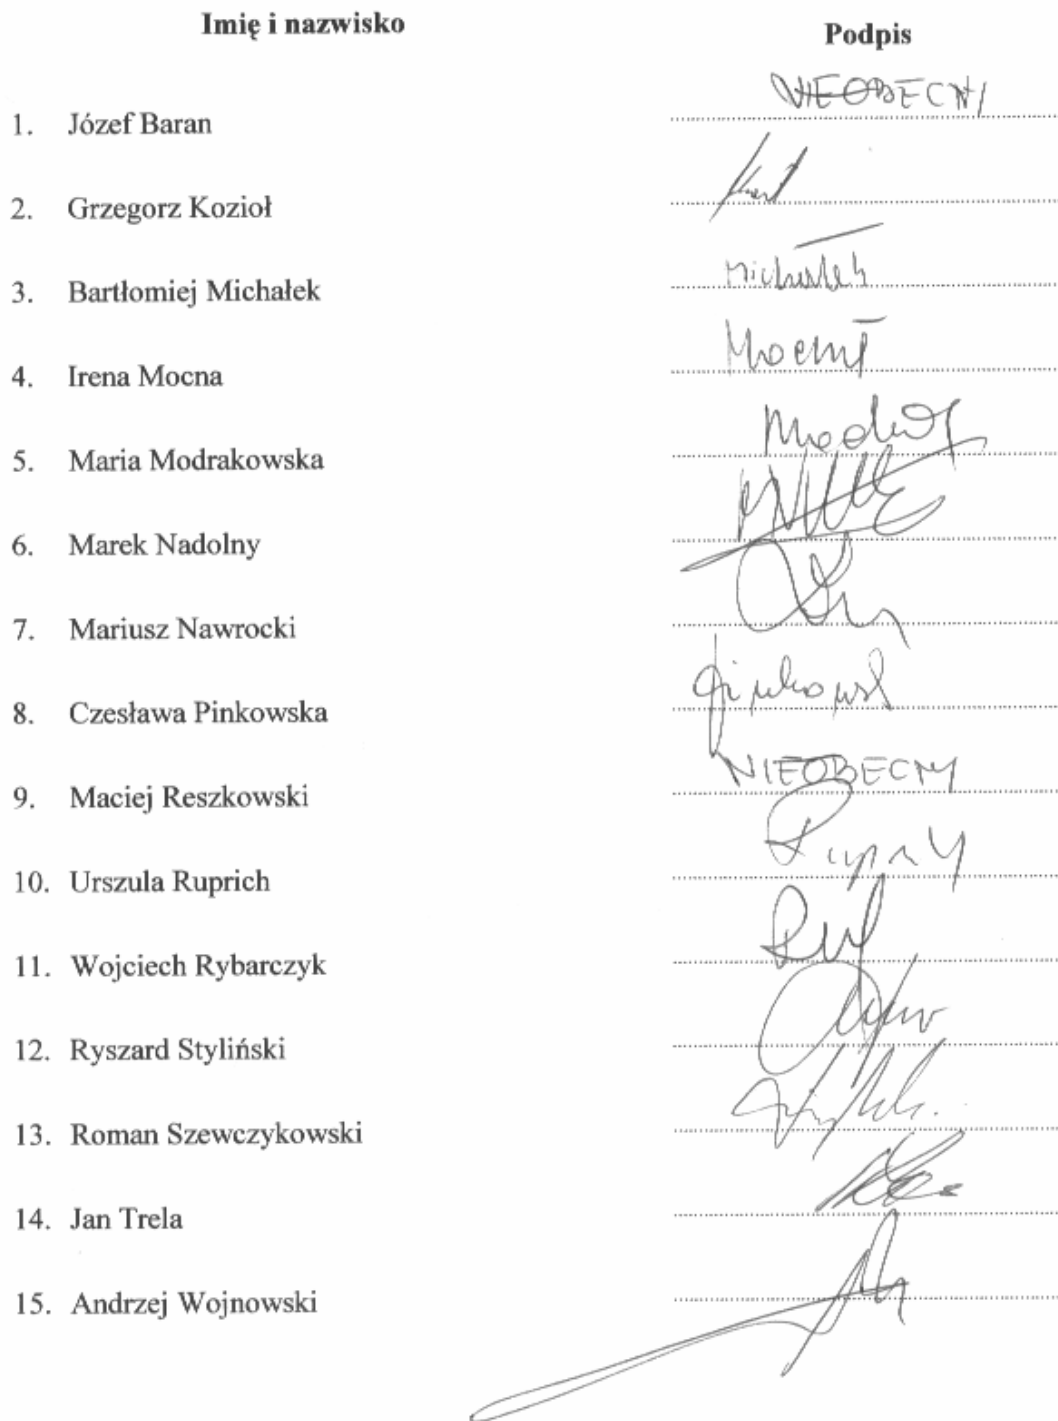 Imię i nazwisko Podpis
1. Józef Baran NIEOBECNY
2. Grzegorz Kozioł
3. Bartłomiej Michałek Michałek
4. Irena Mocna
5. Maria Modrakowska
6. Marek Nadolny
7. Mariusz Nawrocki
8. Czesława Pinkowska
9. Maciej Reszkowski NIEOBECNY
10. Urszula Ruprich
11. Wojciech Rybarczyk
12. Ryszard Styliński
13. Roman Szewczykowski
14. Jan Trela
15. Andrzej Wojnowski